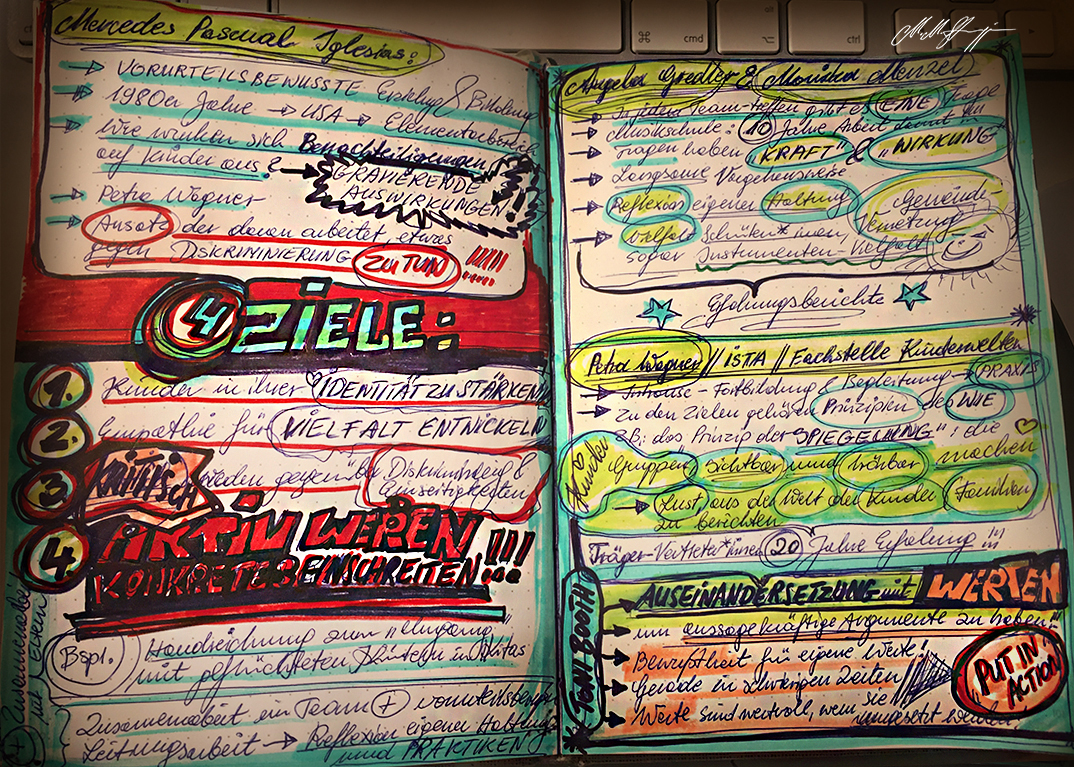 Mercedes Pascual Iglesias:
→ VORURTEILSBEWUSSTE Erziehung & Bildung
→ 1980er Jahre → USA → Elementarbereich
→ Wie wirken sich Benachteiligungen
auf Kinder aus? → GRAVIERENDE
AUSWIRKUNGEN!
→ Petra Wagner
→ Ansatz der daran arbeitet, etwas
gegen DISKRIMINIERUNG ZU TUN !!!!!
4 ZIELE:
1. Kinder in ihrer IDENTITÄT ZU STÄRKEN
2. Empathie für VIELFALT ENTWICKELN
3. KRITISCH werden gegenüber Diskriminierung &
Einseitigkeiten
4. AKTIV WERDEN !!!
KONKRETES EINSCHREITEN!!!
Bspl. Handreichung zum "Umgang"
mit geflüchteten Kindern in Kitas
+ Zusammenarbeit mit Eltern
Zusammenarbeit im Team +
Leitungsarbeit → Reflexion eigener Haltung
und PRAKTIKEN
Angela Gredler & Monika Menzel
→ In jedem Team-treffen gibt es EINE Frage
→ Musikschule: 10 Jahre Arbeit damit !!!
→ Fragen haben "KRAFT" & "WIRKUNG"
→ Langsame Vorgehensweise
→ Reflexion eigener Haltung
Gemeinde
Vernetzung
→ Vielfalt Schüler*innen
sogar Instrumenten-Vielfalt
Erfahrungsberichte
Petra Wagner // ISTA // Fachstelle Kinderwelten
→ Inhouse Fortbildung & Begleitung → PRAXIS
→ Zu den Zielen gehören Prinzipien des WIE
z.B. das Prinzip der "SPIEGELUNG": die
Kinder Gruppen sichtbar und hörbar machen
→ Lust aus der Welt der Kinder Familien
zu berichten
Träger-Vertreter*innen 20 Jahre Erfahrung !!!
* TONI BOOTH
→ AUSEINANDERSETZUNG mit WERTEN
→ um aussagekräftige Argumente zu haben!
→ Bewusstheit für eigene Werte!
→ Gerade in schwierigen Zeiten
→ Werte sind wertvoll, wenn sie
umgesetzt werden
"PUT IN
ACTION"
⌘ cmd
alt
ctrl